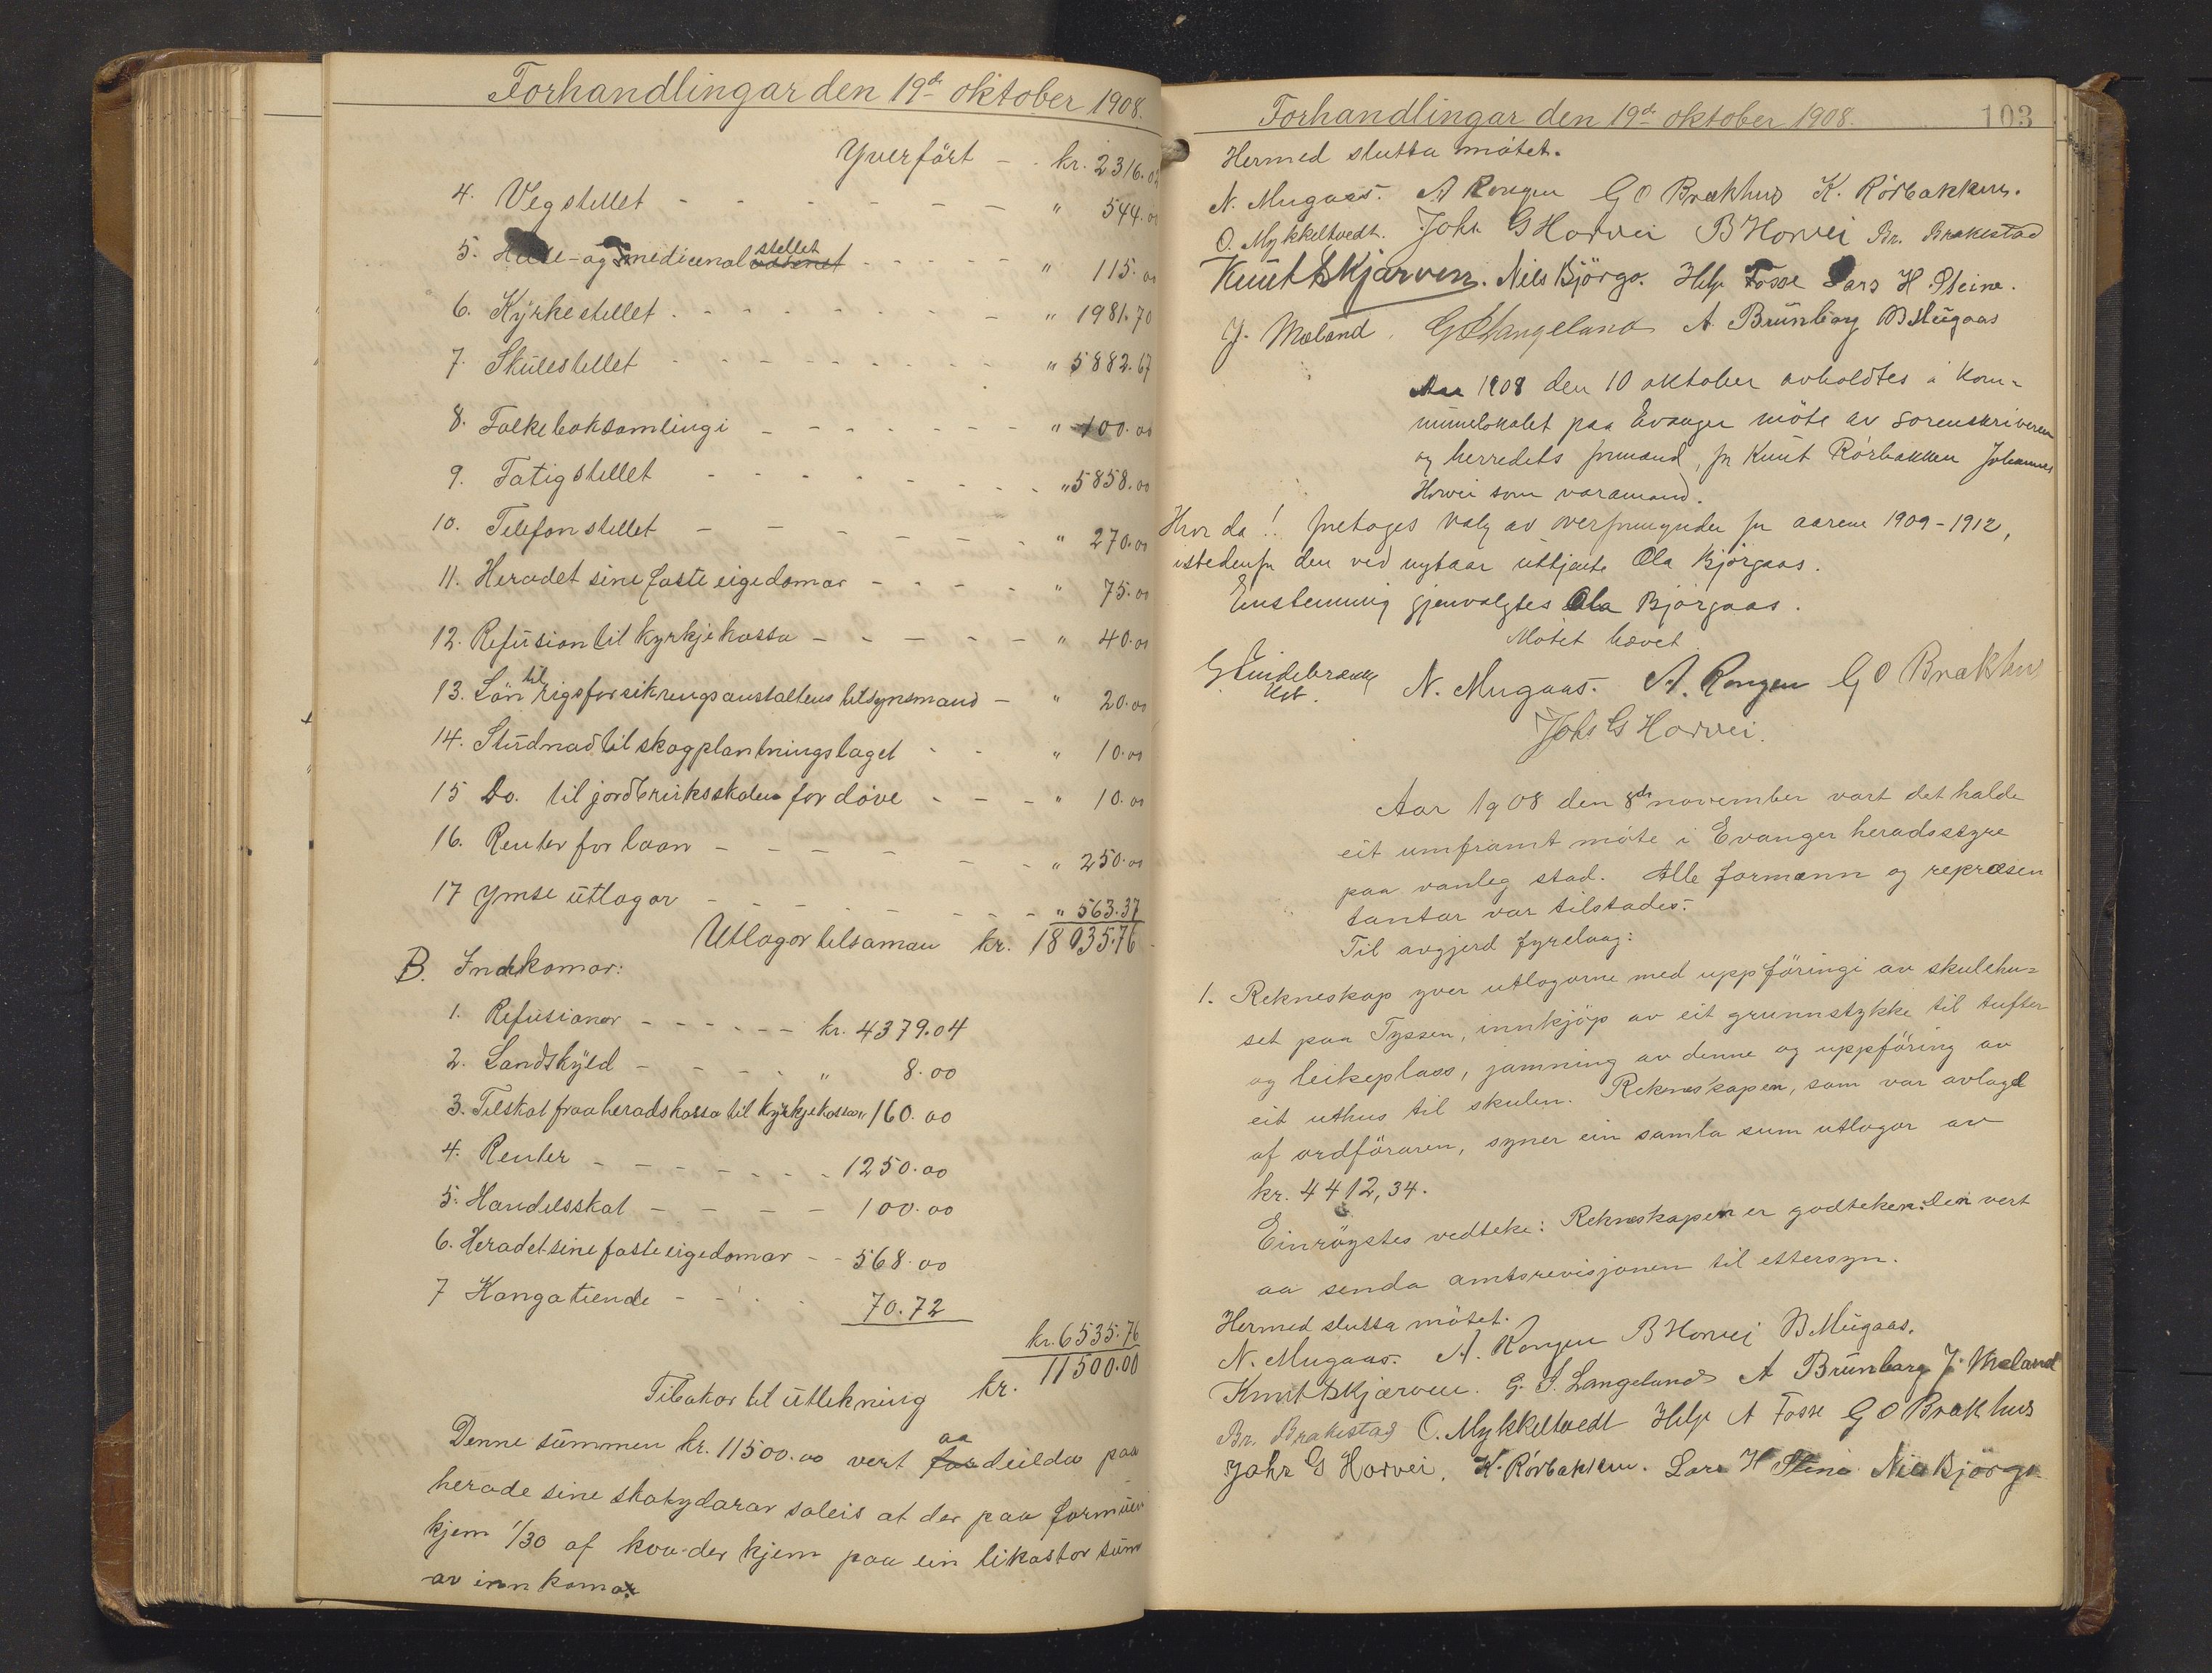 Forhandlingar den 19de oktober 1908.
Yverfört - . kr. 2316.02
4. Vegstellet - - - - - - - " 544.00
5. Helse- og medicenalstellet - - - - - " 115.00
6. Kyrkestellet - - - - - - - - " 1981.70
7. Skulestellet - - - - - - - - " 5882.67
8. Folkeboksamlingi - - - - - - - " 100.00
9. Fatigstellet - - - - - - - - " 5858.00
10. Telefonstellet - - - - - - - " 270.00
11. Heradet sine faste eigedomar - - - - - " 75.00
12. Refusion til kyrkjekassa - - - - - " 40.00
13. Lön til rigsforsikringsanstaltens tilsynsmand - " 20.00
14. Studnad til skogplantningslaget - - " 10.00
15 Do. til jordbruksskolen for döve - - - " 10.00
16. Renter for laan - - - - - - - " 250.00
17 Ymse utlogor - - - - - - - - " 563.37
Utlogor tilsaman kr. 18035.76
B. Inrkomor:
1. Refusioner - - - - - - kr. 4379.04
2. Landskyld - - - - - " 8.00
3. Tilskot fraa heradskassa til kyrkjekassa " 160.00
4. Renter - - - - - - - 1250.00
5. Handelsskat - - - - - 100.00
6. Heradet sine faste eigedomar - - 568.00
7 Kongatiende - - - - 70.72
kr. 6535.76
Tilbakar til utlikning kr. 11500.00
Denne summen kr. 11500.00 vert aa deilda paa
herade sine skatydarar soleis at der paa formue
kjem 1/30 af kva der kjem paa ein likastor sum
av innkoma.
Forhandlingar den 19de oktober 1908. 103
Hermed slutta mötet.
N. Mugaas. A Rongen G O Brækhus K. Rörbakken.
O. Mykkeltvedt. Johs G Horvei B Horvei Br. Brakestad
Knut Skjærven. Nils Björgo. Helje Fosse Lars H. Steine.
J. Mæland. G S Langeland A. Brunborg B Mugaas
Aar 1908 den 10 oktober avholdtes i kom-
munelokalet paa Evanger möte av sorenskriveren
og herredets formænd, for Knut Rörbakken Johannes
Horvei som varamand.
Hvor da! foretoges valg av overformynder for aarene 1909-1912,
istedenfor den ved nytaar uttjente Ola Bjørgaas.
Enstemmig gjenvalgtes Ola Bjørgaas.
Mötet hævet
G Lindebrække N. Mugaas. A. Rongen G O Brækhus
Kst.
Johs G Horvei.
Aar 1908 den 8de november vart det halde
eit umframt möte i Evanger heradsstyre
paa vanleg stad. Alle formænn og repræsen
tantar var tilstades.
Til avgjerd fyrelaag:
1. Rekneskap yver utlogorne med uppföringi av skulehu-
set paa Tyssen, innkjöp av eit grunnstykke til tufter
og leikeplass, jamning av denne og uppföring av
eit uthus til skulen. Rekneskapen, som var avlagd
af ordföraren, syner ein samla sum utlogor av
kr. 4412,34.
Einröystes vedteke: Rekneskapen er godteken. Den vert
aa senda amtsrevisjonen til ettersyn.
Hermed slutta mötet.
N. Mugaas. A. Rongen B Horvei B Mugaas.
Knut Skjærven. G. S. Langeland A Brunborg J. Mæland
Br. Brakestad O. Mykkeltvedt Helje A Fosse G O Brækhus
Johs G Horvei. K. Rörbakken. Lars H Steine Nils Björgo